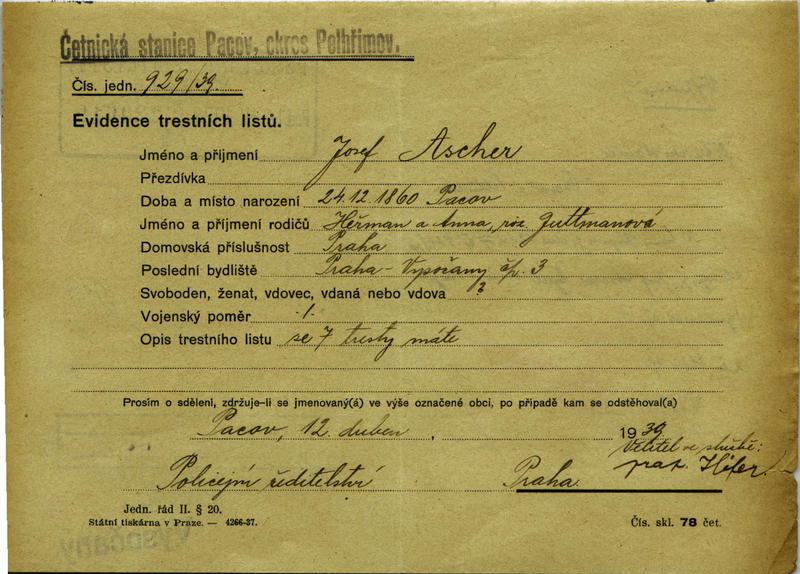 Četnická stanice Pacov, okres Pelhřimov.
Čís. jedn. 929/39.
Evidence trestních listů.
Jméno a příjmení Josef Ascher
Přezdívka
Doba a místo narození 24.12.1860 Pacov
Jméno a příjmení rodičů Heřman a Anna, roz. Guttmanová
Domovská příslušnost Praha
Poslední bydliště Praha - Vysočany čp. 3
Svoboden, ženat, vdovec, vdaná nebo vdova ?
Vojenský poměr ./.
Opis trestního listu se 7 tresty máte
Prosím o sdělení, zdržuje-li se jmenovaný(á) ve výše označené obci, po případě kam se odstěhoval(a)
Pacov, 12. duben , 1939
Velitel ve službě:
Policejní ředitelství Praha. prap.
Jedn. řád II. § 20.
Státní tiskárna v Praze. — 4266-37.
Čís. skl. 78 čet.
Vysočany